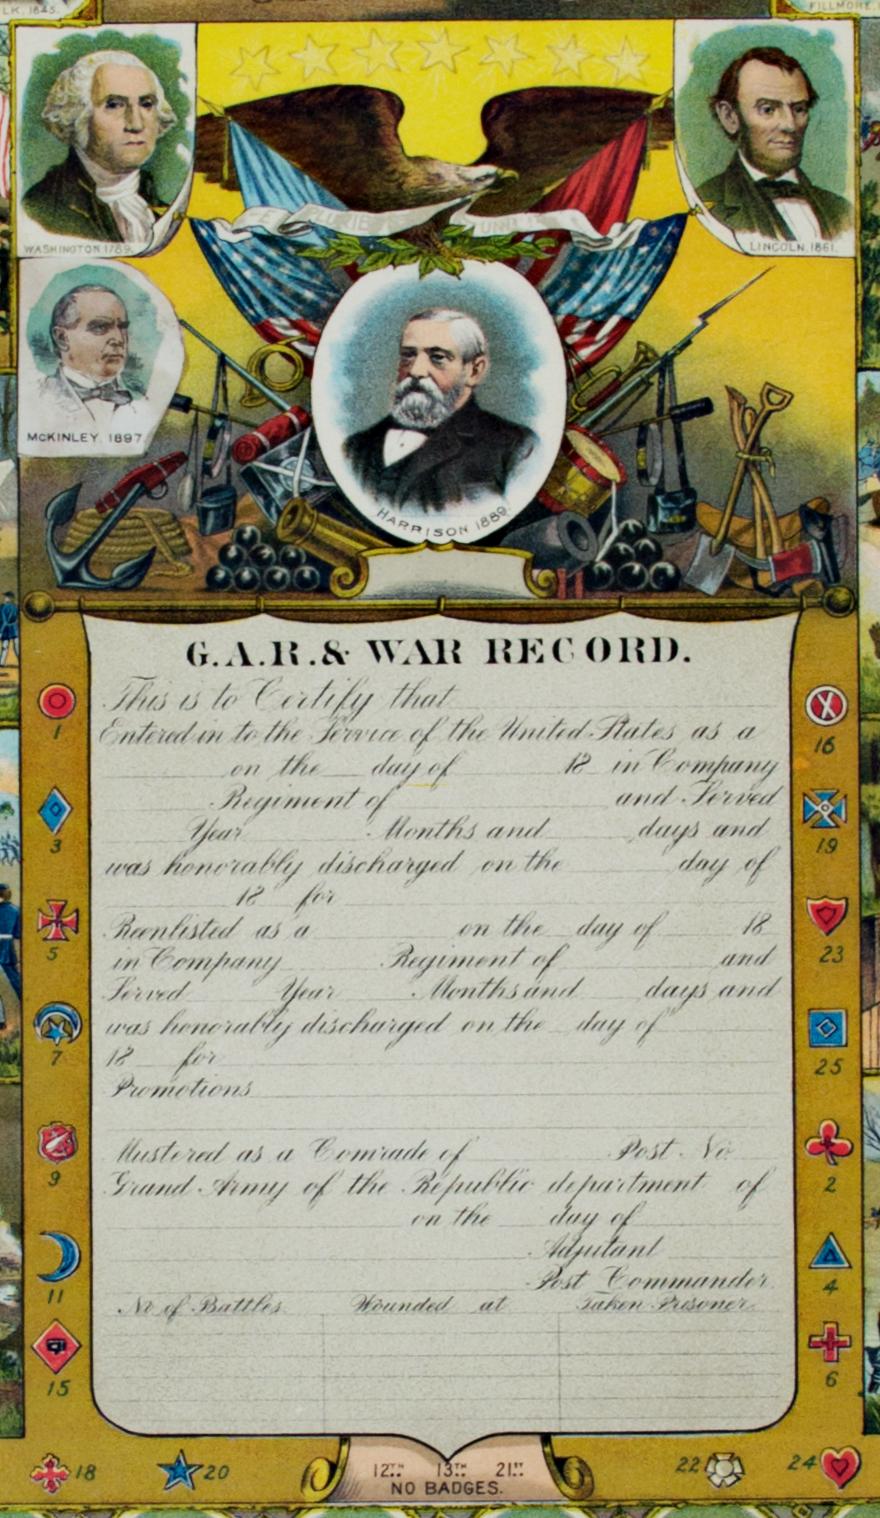 LK, 1845.
FILLMORE, 1
WASHINGTON 1789.
LINCOLN, 1861.
E PLURIBUS UNUM
McKINLEY, 1897.
HARRISON 1889.
G.A.R. & WAR RECORD.
This is to Certify that
Entered in to the Service of the United States as a
on the day of 18 in Company
Regiment of and Served
Year Months and days and
was honorably discharged on the day of
18 for
Reenlisted as a on the day of 18
in Company Regiment of and
Served Year Months and days and
was honorably discharged on the day of
18 for
Promotions
Mustered as a Comrade of Post No.
Grand Army of the Republic department of
on the day of
Adjutant
Post Commander.
No of Battles Wounded at Taken Prisoner.
1
3
5
7
9
11
15
16
19
23
25
2
4
6
18
20
12TH 13TH 21ST
NO BADGES.
22
24